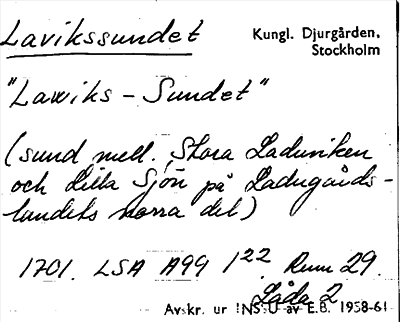 Lavikssundet
Kungl. Djurgården,
Stockholm
"Lawiks - Sundet"
(sund mell. Stora Laduviken
och Lilla Sjön på Ladugårds-
landets norra del)
1701. LSA A99 1²² Rum 29.
Låda 2
Avskr. ur INSSU av E.B. 1958-61